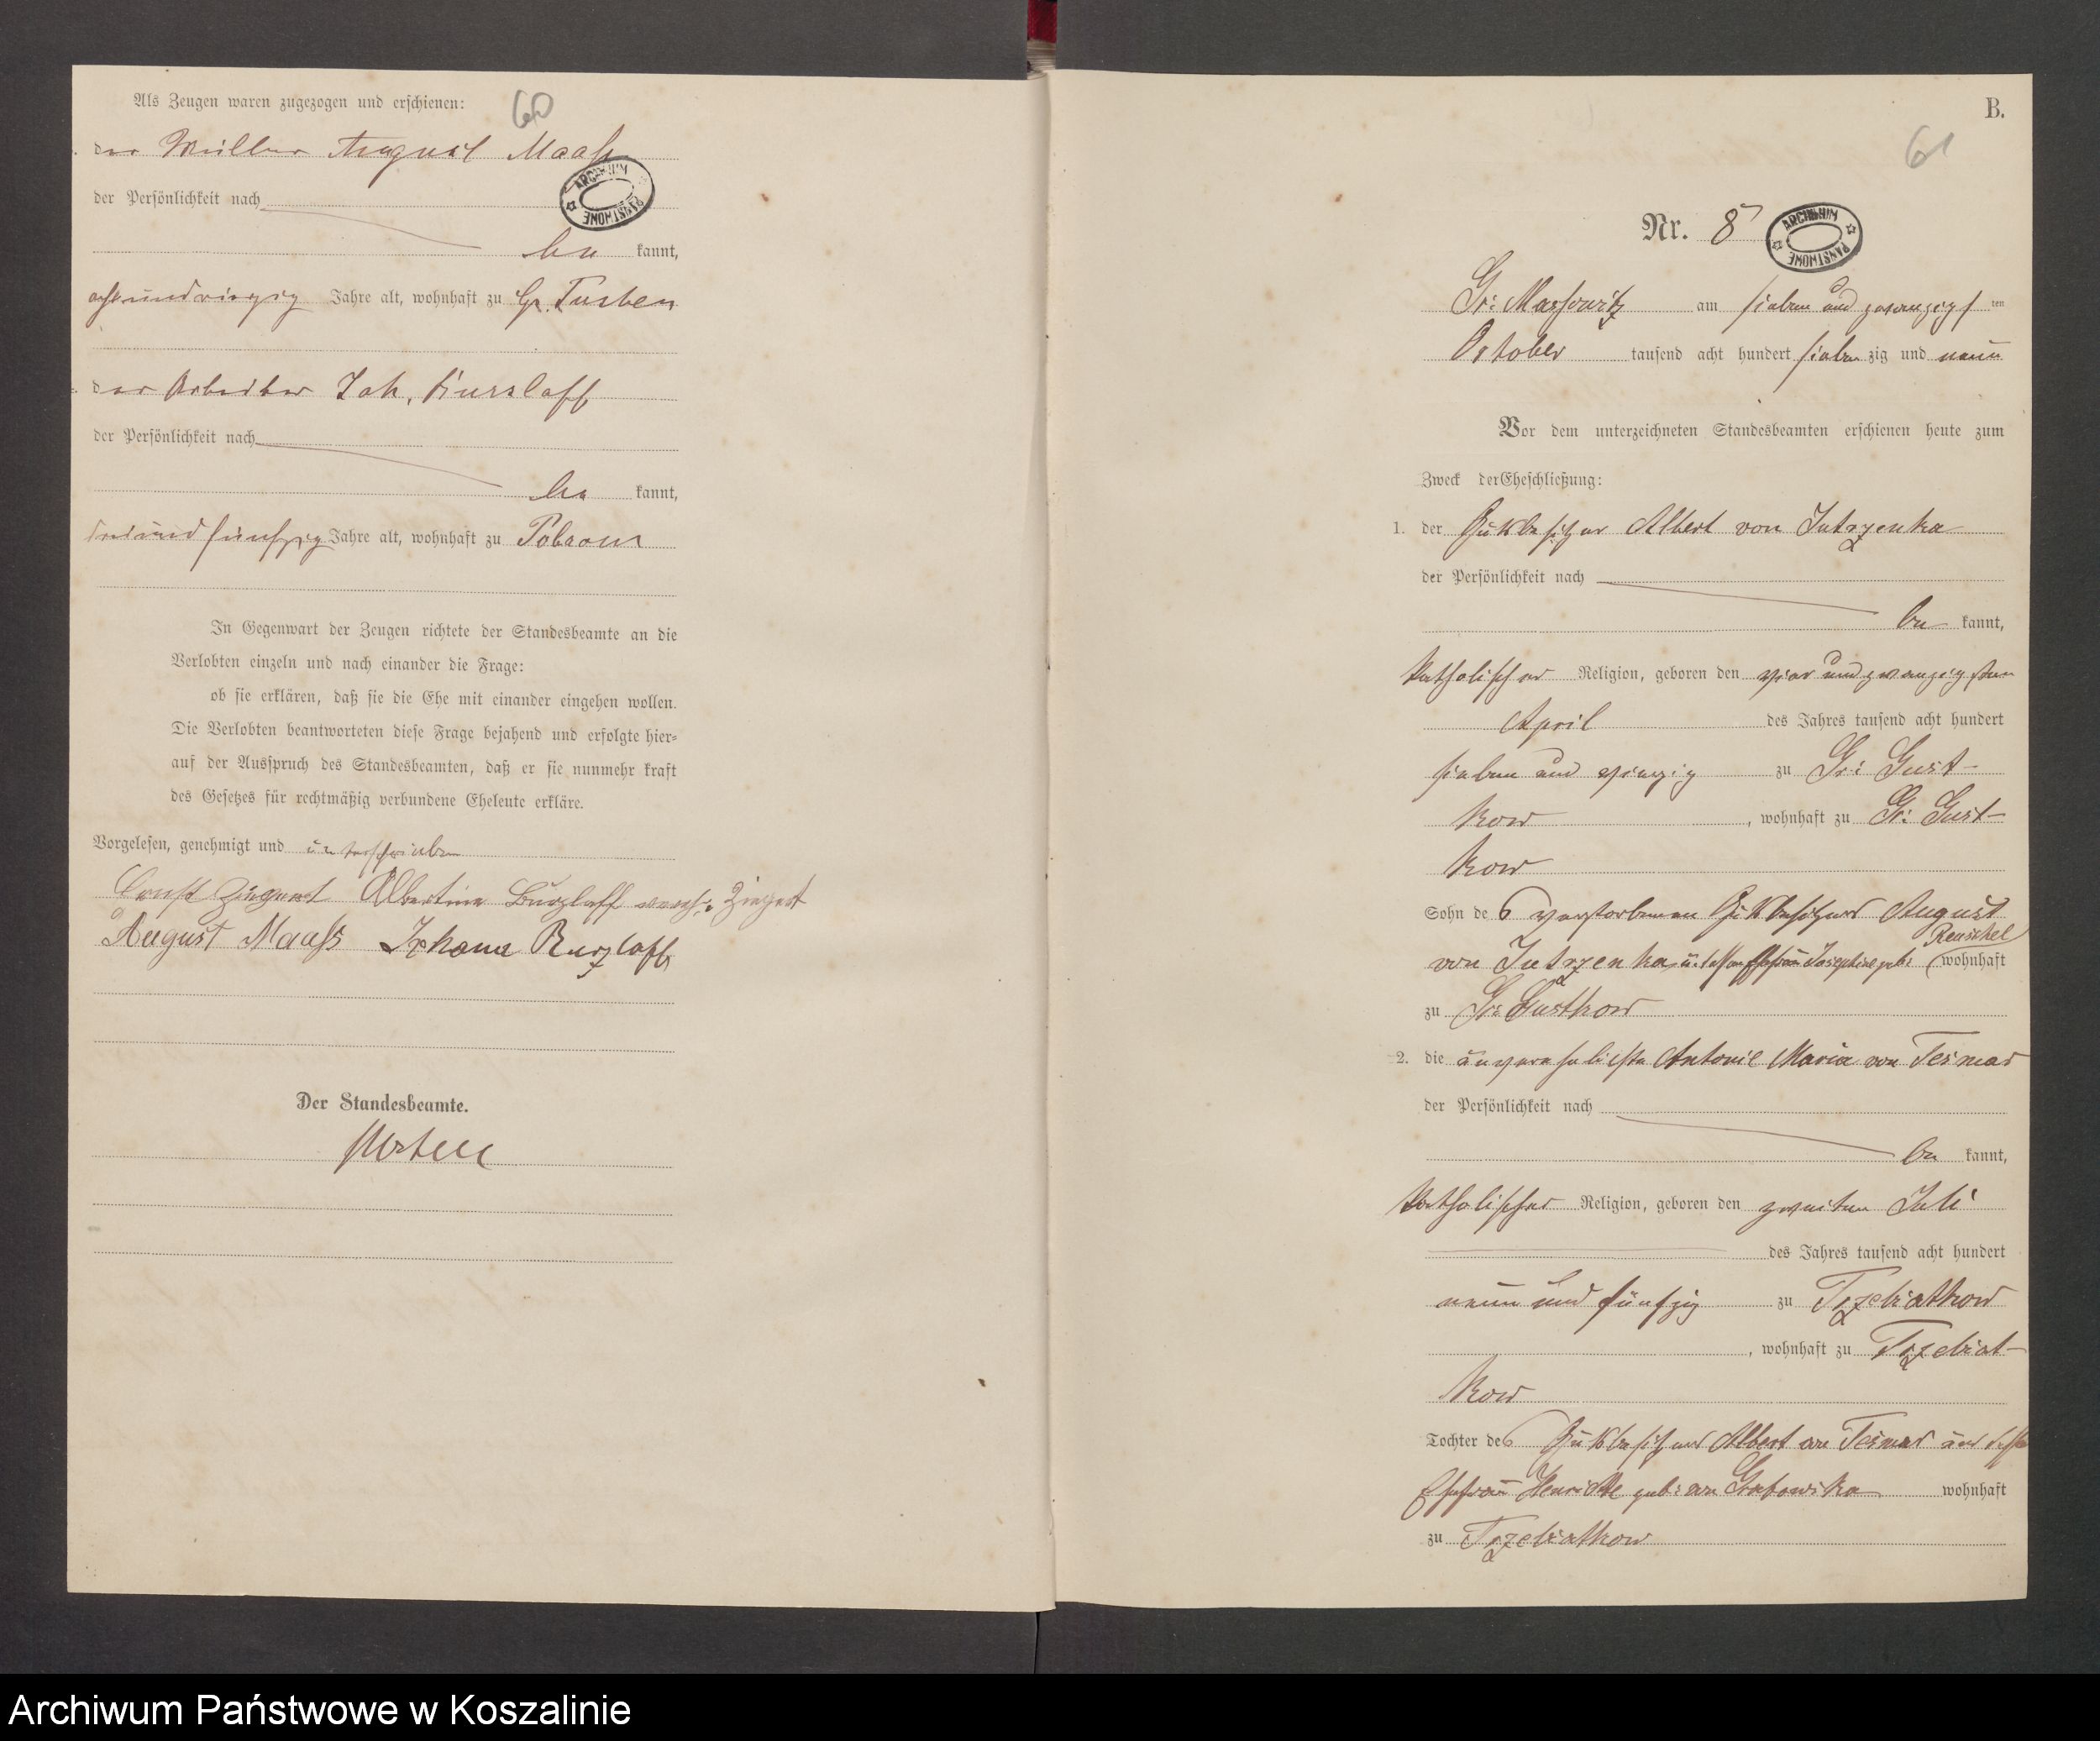 Als Zeugen waren zugezogen und erschienen:
60
der Müller August Maaß
der Persönlichkeit nach
be kannt,
achtundvierzig Jahre alt, wohnhaft zu Gr. Tuchen
der Arbeiter Joh. Burzlaff
der Persönlichkeit nach
be kannt,
dreiundfünfzig Jahre alt, wohnhaft zu
In Gegenwart der Zeugen richtete der Standesbeamte an die
Verlobten einzeln und nach einander die Frage:
ob sie erklären, daß sie die Ehe mit einander eingehen wollen.
Die Verlobten beantworteten diese Frage bejahend und erfolgte hier-
auf der Ausspruch des Standesbeamten, daß er sie nunmehr kraft
des Gesetzes für rechtmäßig verbundene Eheleute erkläre.
Vorgelesen, genehmigt und unterschrieben
Ernst Ziegert Albertine Burzlaff Ziegert
August Maaß Johann Burzlaff
Der Standesbeamte.
B.
61
Nr. 8
ARCHIWUM PAŃSTWOWE
Gr: Massowitz am sieben und zwanzigs ten
October tausend acht hundert sieben zig und neun
Vor dem unterzeichneten Standesbeamten erschienen heute zum
Zweck der Eheschließung:
1. der Gutsbesitzer Albert von Jutrzenka
der Persönlichkeit nach
be kannt,
katholischer Religion, geboren den vier und zwanzigsten
April des Jahres tausend acht hundert
sieben und vierzig zu Gr: Gust-
kow, wohnhaft zu Gr: Gust-
kow
Sohn des verstorbenen Gutsbesitzers August
von Jutrzenka u. dessen Ehefrau Josephine geb: Reuschel wohnhaft
zu Gr: Gustkow
2. die unverehelichte Antonie Maria von Tesmar
der Persönlichkeit nach
be kannt,
katholischer Religion, geboren den zweiten Juli
des Jahres tausend acht hundert
neun und fünfzig zu Trzebiatkow
, wohnhaft zu Trzebiat-
kow
Tochter des Gutsbesitzers Albert von Tesmar und dessen
Ehefrau Henriette geb: von Grabowska wohnhaft
zu Trzebiatkow
Archiwum Państwowe w Koszalinie